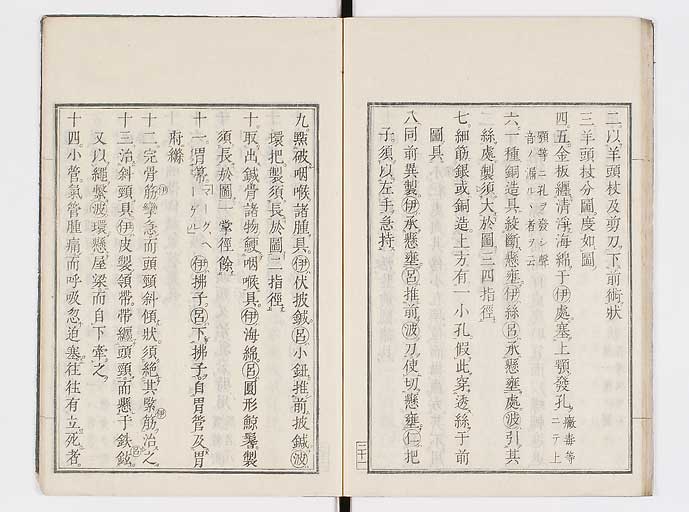 二以羊頭杖及剪刀下前術狀
三羊頭杖分圖度如圖
四五金板纏清淨海綿于㋑伊處塞上顎發孔黴毒等ニテ上
顎等ニ孔ヲ發シ聲
音ノ漏ルヽ者ヲ云
六一種銅造具絞斷懸壅伊絲呂承懸壅處波引其
絲處製須大於圖三四指徑
七細筋銀或銅造上方有一小孔假此穿透絲于前
圖具
八同前異製伊承懸壅呂推前波刀使切懸壅仁把
子須以左手急持
九㸃破咽喉諸腫具伊伏披鍼呂小鈕推前披鍼波
環把製須長於圖二指徑
十取出鍼骨諸物鯁咽喉具伊海綿呂圓形鯨鬚製
須長於圖一掌徑餘
十一胃篆マーグヘーゲル伊拂子呂下拂子自胃管及胃
府滌
十二完骨筋攣急而頭頸斜傾狀須絶其緊筋伊治之
十三治斜頸具伊皮製領帶帶纏頭頸而懸于鉄鉉呂
又以繩繫波環懸屋梁而自下牽之
十四小管氣管腫痛而呼吸忽迫塞往往有立死者
二十一